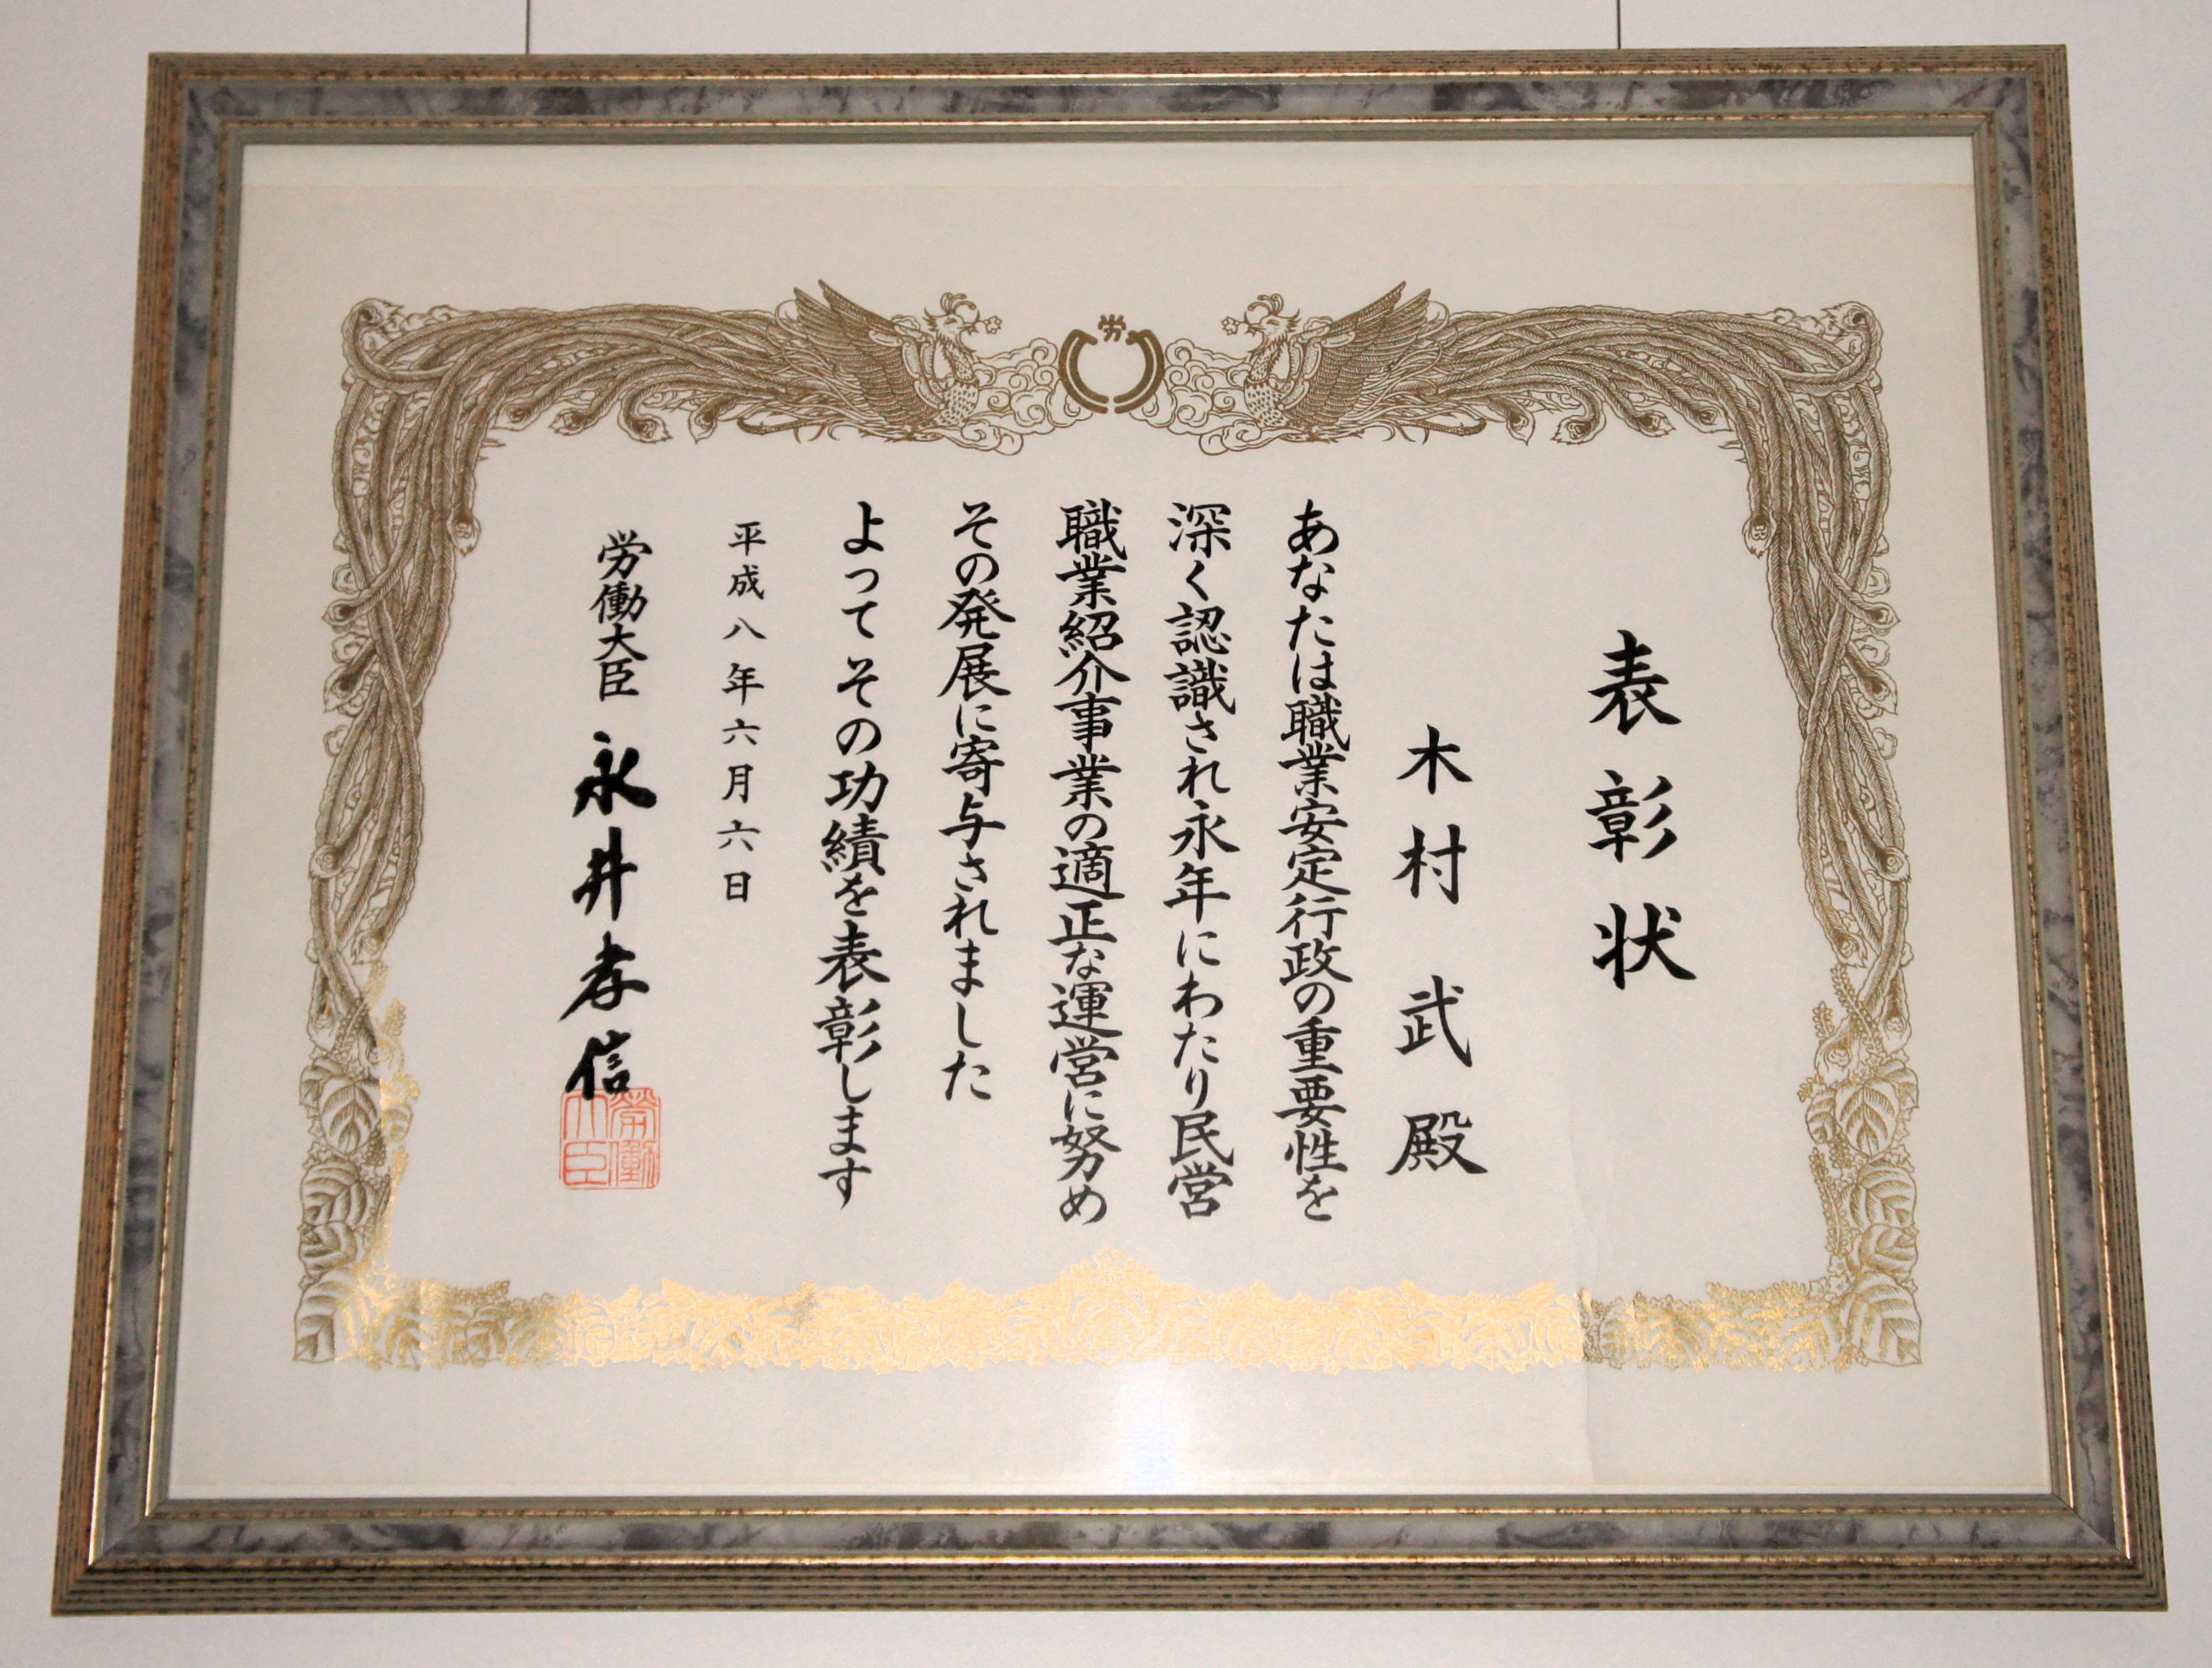 労
表彰状
木村武殿
あなたは職業安定行政の重要性を
深く認識され永年にわたり民営
職業紹介事業の適正な運営に努め
その発展に寄与されました
よってその功績を表彰します
平成八年六月六日
労働大臣 永井孝信
労働
大臣